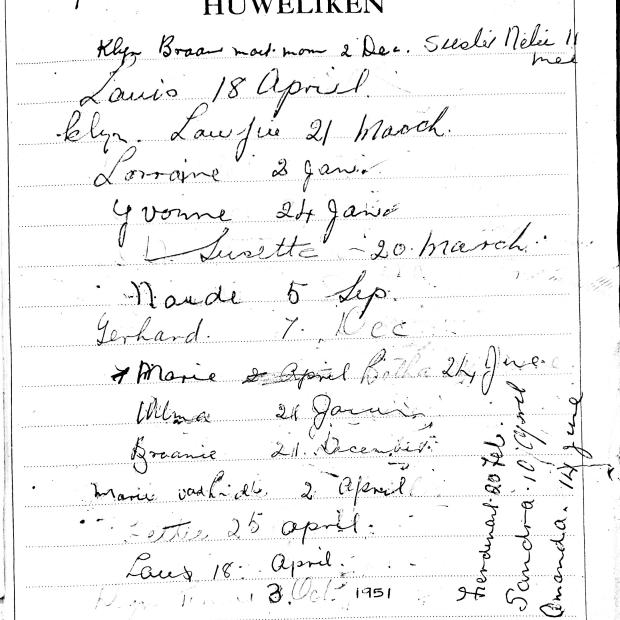 HUWELIKEN
Klyn Braam 2 Dec. Susler Nelie 11
mei
Lauis 18 April.
klyn. Loufie 21 March.
Lorraine 2 Jan
Yvonne 24 Jan
Susette - 20. March.
Naude 5 Sep.
Gerhard. 7. Dec
Marie 2 April Botha 24 June
Wilma 21
Braamie 21. December.
Marie 2 April
25 april.
Laus 18. April.
3. Oct. 1951
20 Feb.
Sandra 10 April
Amanda. 14 June